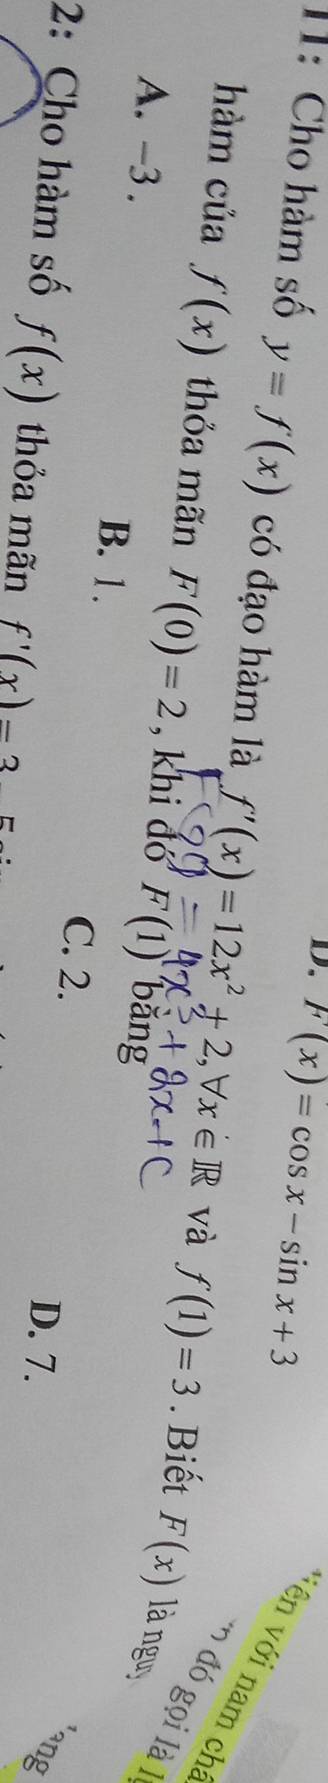 D. F(x) = cos x − sin x + 3
11: Cho hàm số y = f(x) có đạo hàm là f'(x) = 12x² + 2, ∀x ∈ ℝ và f(1) = 3. Biết F(x) là
= 4x³ + 2x + C
hàm của f(x) thỏa mãn F(0) = 2, khi đó F(1) bằng
A. −3. B. 1. C. 2. D. 7.
2: Cho hàm số f(x) thỏa mãn f'(x) = 3
với nam châ
đó gọi là